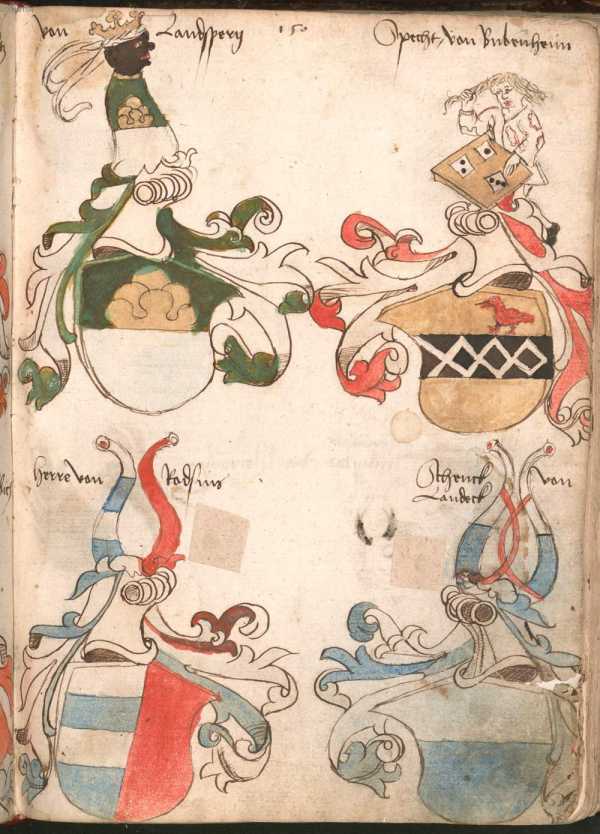 von Landsperg
150
Specht von Bubenheim
Herre von
Schenck von
Landeck